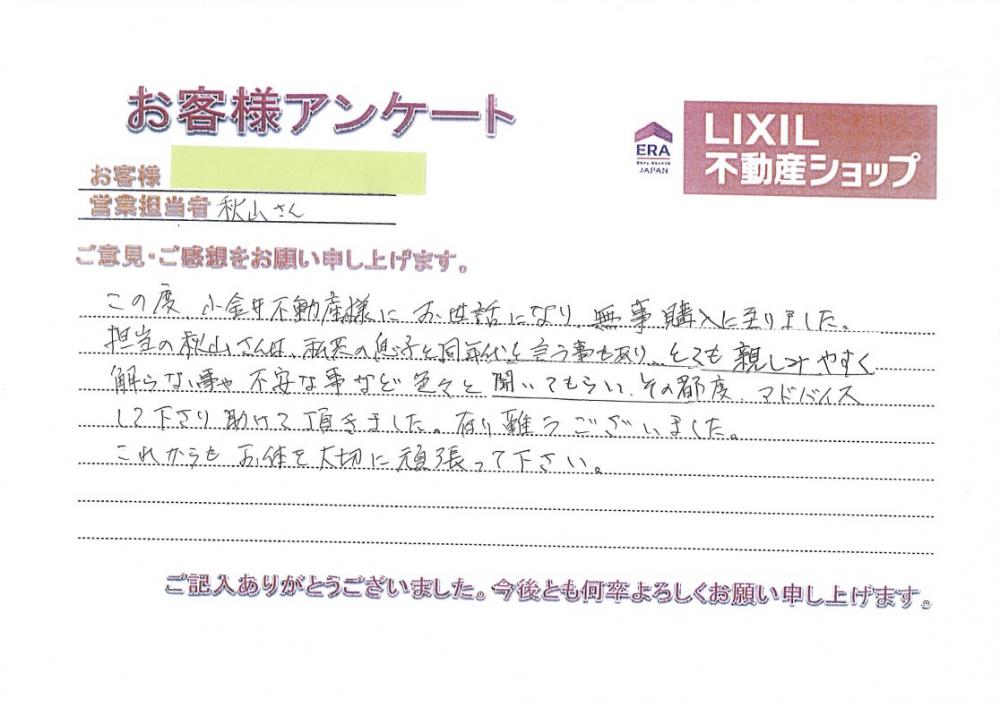 お客様アンケート
ERA
JAPAN
LIXIL
不動産ショップ
お客様
営業担当者 秋山さん
ご意見・ご感想をお願い申し上げます。
この度、小金井不動産様にお世話になり、無事購入に至りました。
担当の秋山さんは、私共の息子と同年代と言う事もあり、とても親しみやすく
解らない事や不安な事など色々と聞いてもらい、その都度、アドバイス
して下さり助けて頂きました。有り難うございました。
これからもお体を大切に頑張って下さい。
ご記入ありがとうございました。今後とも何卒よろしくお願い申し上げます。